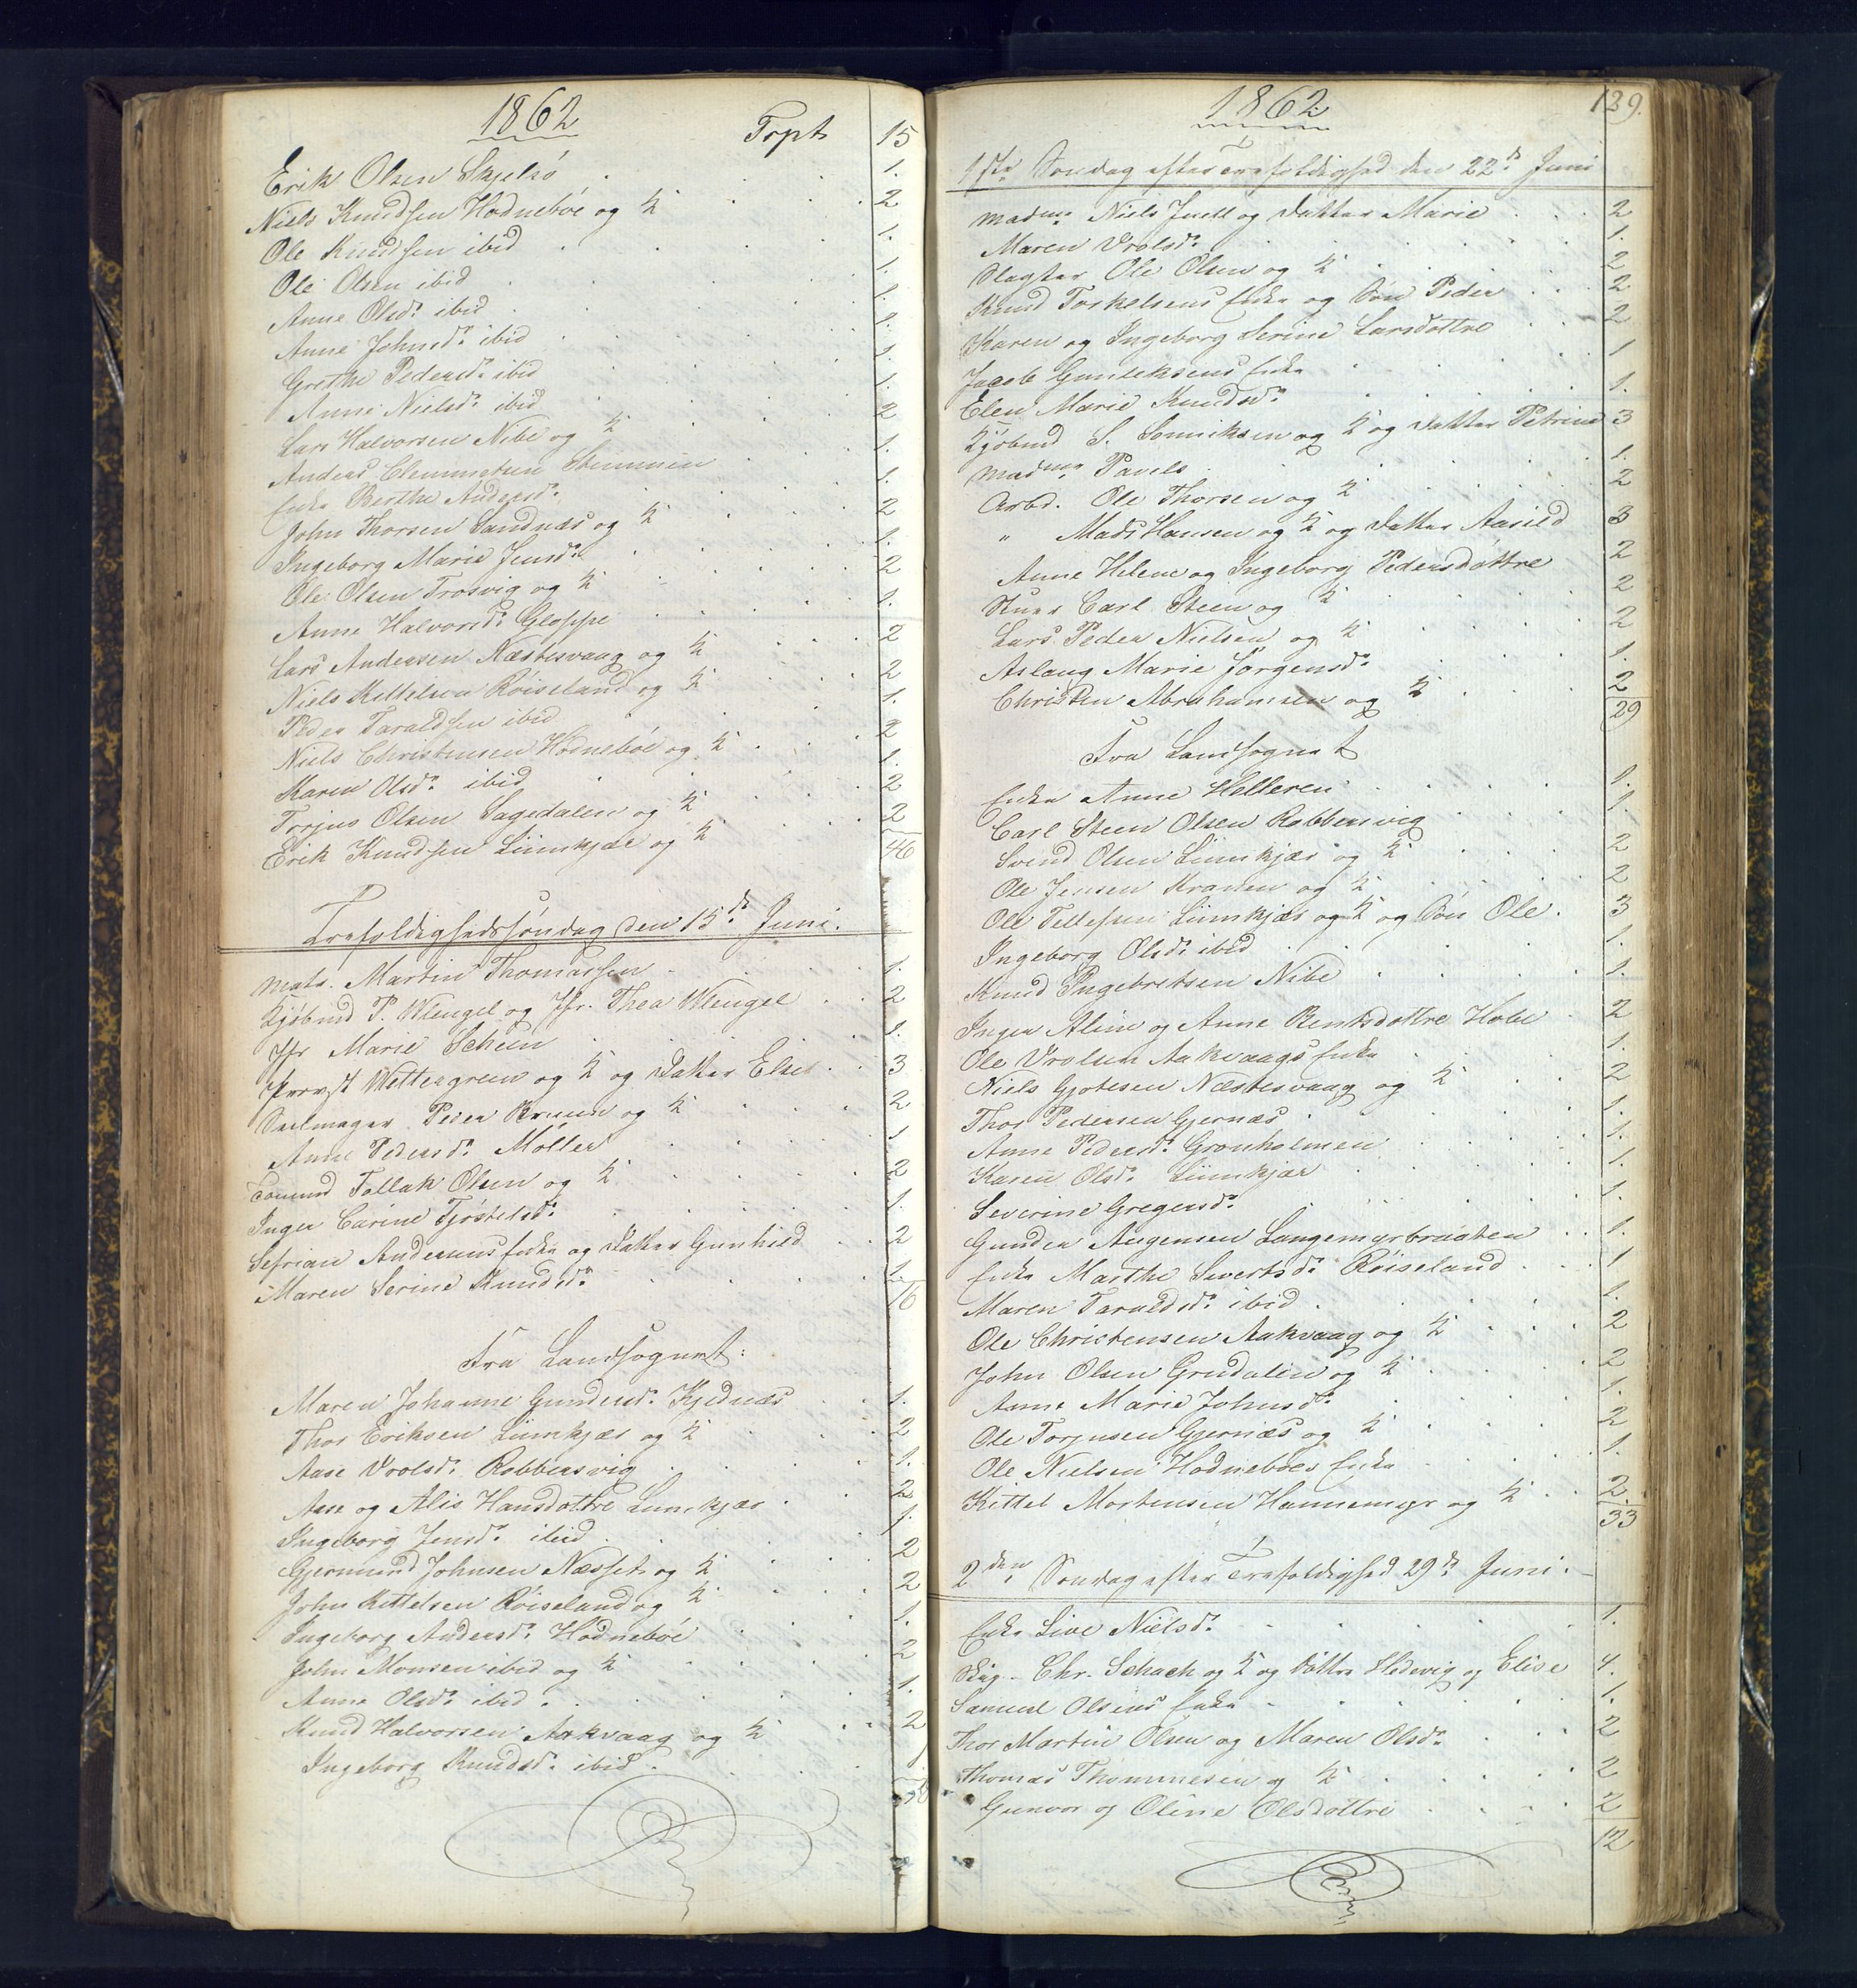 1862
Trpt 15
Erik Olsen Skjelsö . . . 1.
Niels Knudsen Hodneböe og K . . . 2
Ole Knudsen ibid . . . 1.
Ole Olsen ibid . . . 1.
Anne Olsdr ibid . . . 1.
Anne Johnsdr ibid . . . 1.
Grethe Pedersdr ibid . . . 1.
Anne Nielsdr ibid . . . 1.
Lars Halvorsen Nibe og K . . . 2
Anders Clemmetsen . . . 1.
Enke Berthe Andersdr . . . 1.
John Thorsen Sandnæs og K . . . 2
Ingeborg Marie Jensdr . . . 1.
Ole Olsen Trosvig og K . . . 2
Anne Halvorsdr Gloppe . . . 1.
Lars Andersen Næstesvaag og K . . . 2
Niels Kittelsen Röiseland og K . . . 2
Peder Taraldsen ibid . . . 1.
Niels Christensen Hodneböe og K . . . 2
Karen Olsdr ibid . . . 1.
Torjus Olsen Sagedalen og K . . . 2
Erik Knudsen Liimkjær og K . . . 2
46
Trefoldighedssöndag den 15de Juni.
Matr. Martin Thomassen . . . 1.
Kjöbmd P. Wengel og Jfr. Thea Wengel . . . 2
Jfr Marie Scheen . . . 1.
Provst Wettergreen og K og Datter Elise . . . 3
Seilmager Peder Bruun og K . . . 2
Anne Pedersdr Möller . . . 1
Tömmd Tallak Olsen og K . . . 2
Inger Carine Tjöstelsdr . . . 1.
Sefrian Andersens Enke og Datter Gunhild . . . 2
Maren Serine Knudsdr . . . 1.
16
Fra Landsognet:
Maren Johanne Gundersdr Kjednæs . . . 1.
Thor Eriksen Liimkjær og K . . . 2
Aase Vrolsdr Robbersvig . . . 1.
Aase og Alis Hansdöttre Liimkjær . . . 2
Ingeborg Jensdr ibid . . . 1.
Gjermund Johnsen Næsset og K . . . 2
John Kittelsen Röiseland og K . . . 2
Ingeborg Andersdr Hodneböe . . . 1.
John Monsen ibid og K . . . 2
Anne Olsdr ibid . . . 1.
Knud Halvorsen Aakvaag og K . . . 2
Ingeborg Knudsdr ibid . . . 1
1862
129.
1ste Söndag efter Trefoldighed den 22de Juni
Madme Niels Juell og Datter Marie . . . 2
Maren Vrolsdr . . . 1.
Slagter Ole Olsen og K . . . 2
Knud Torkelsens Enke og Sön Peder . . . 2
Karen og Ingeborg Serine Larsdöttre . . . 2
Jacob Gunleksens Enke . . . 1
Elen Marie Knudsdr . . . 1.
Kjöbmd S. Sönniksen og K og Datter Petrine 3
Madme Pavels . . . 1.
Arbd. Ole Thorsen og K . . . 2
" Mads Hansen og K og Datter Aasild 3
Anne Helene og Ingeborg Pedersdöttre . . . 2
Stuer Carl Steen og K . . . 2
Lars Peder Nielsen og K . . . 2
Aslaug Marie Jörgensdr . . . 1.
Christen Abrahamsen og K . . . 2
29
Fra Landsognet
Enke Anne Helleren . . . 1.
Carl Steen Olsen Robbersvig . . . 1.
Svend Olsen Liimkjær og K . . . 2
Ole Jensen Kranen og K . . . 2
Ole Tellefsen Liimkjær og K og Sön Ole . . . 3
Ingeborg Olsdr ibid . . . 1.
Knud Ingebretsen Nibe . . . 1.
Inger Aline og Anne Bentsdöttre Hobe . . . 2
Ole Vrolsen Aakvaags Enke . . . 1.
Niels Gjotesen Næstesvaag og K . . . 2
Thor Pedersen Gjernæs . . . 1.
Anne Pedersdr Grönholmen . . . 1.
Karen Olsdr Liimkjær . . . 1.
Severine Gregersdr . . . 1.
Gunder Augensen Langemyrbraaten . . . 1.
Enke Marthe Sivertsdr Röiseland . . . 1
Maren Taraldsdr ibid . . . 1.
Ole Christensen Aakvaag og K . . . 2
John Olsen Grudalen og K . . . 2
Anne Marie Johnsdr . . . 1.
Ole Torjusen Gjernæs og K . . . 2
Ole Nielsen Hodneböes Enke . . . 1.
Kittel Mortensen Hannemyr og K . . . 2.
33
2den Söndag efter Trefoldighed 29de Juni.
Enke Live Nielsdr . . . 1.
Chr. Schach og K og Döttre Hedevig og Elise 4.
Samuel Olsens Enke . . . 1.
Thor Martin Olsen og Maren Olsdr . . . 2
Thomas Thommesen og K . . . 2
Gunvor og Oline Olsdöttre . . . 2
12